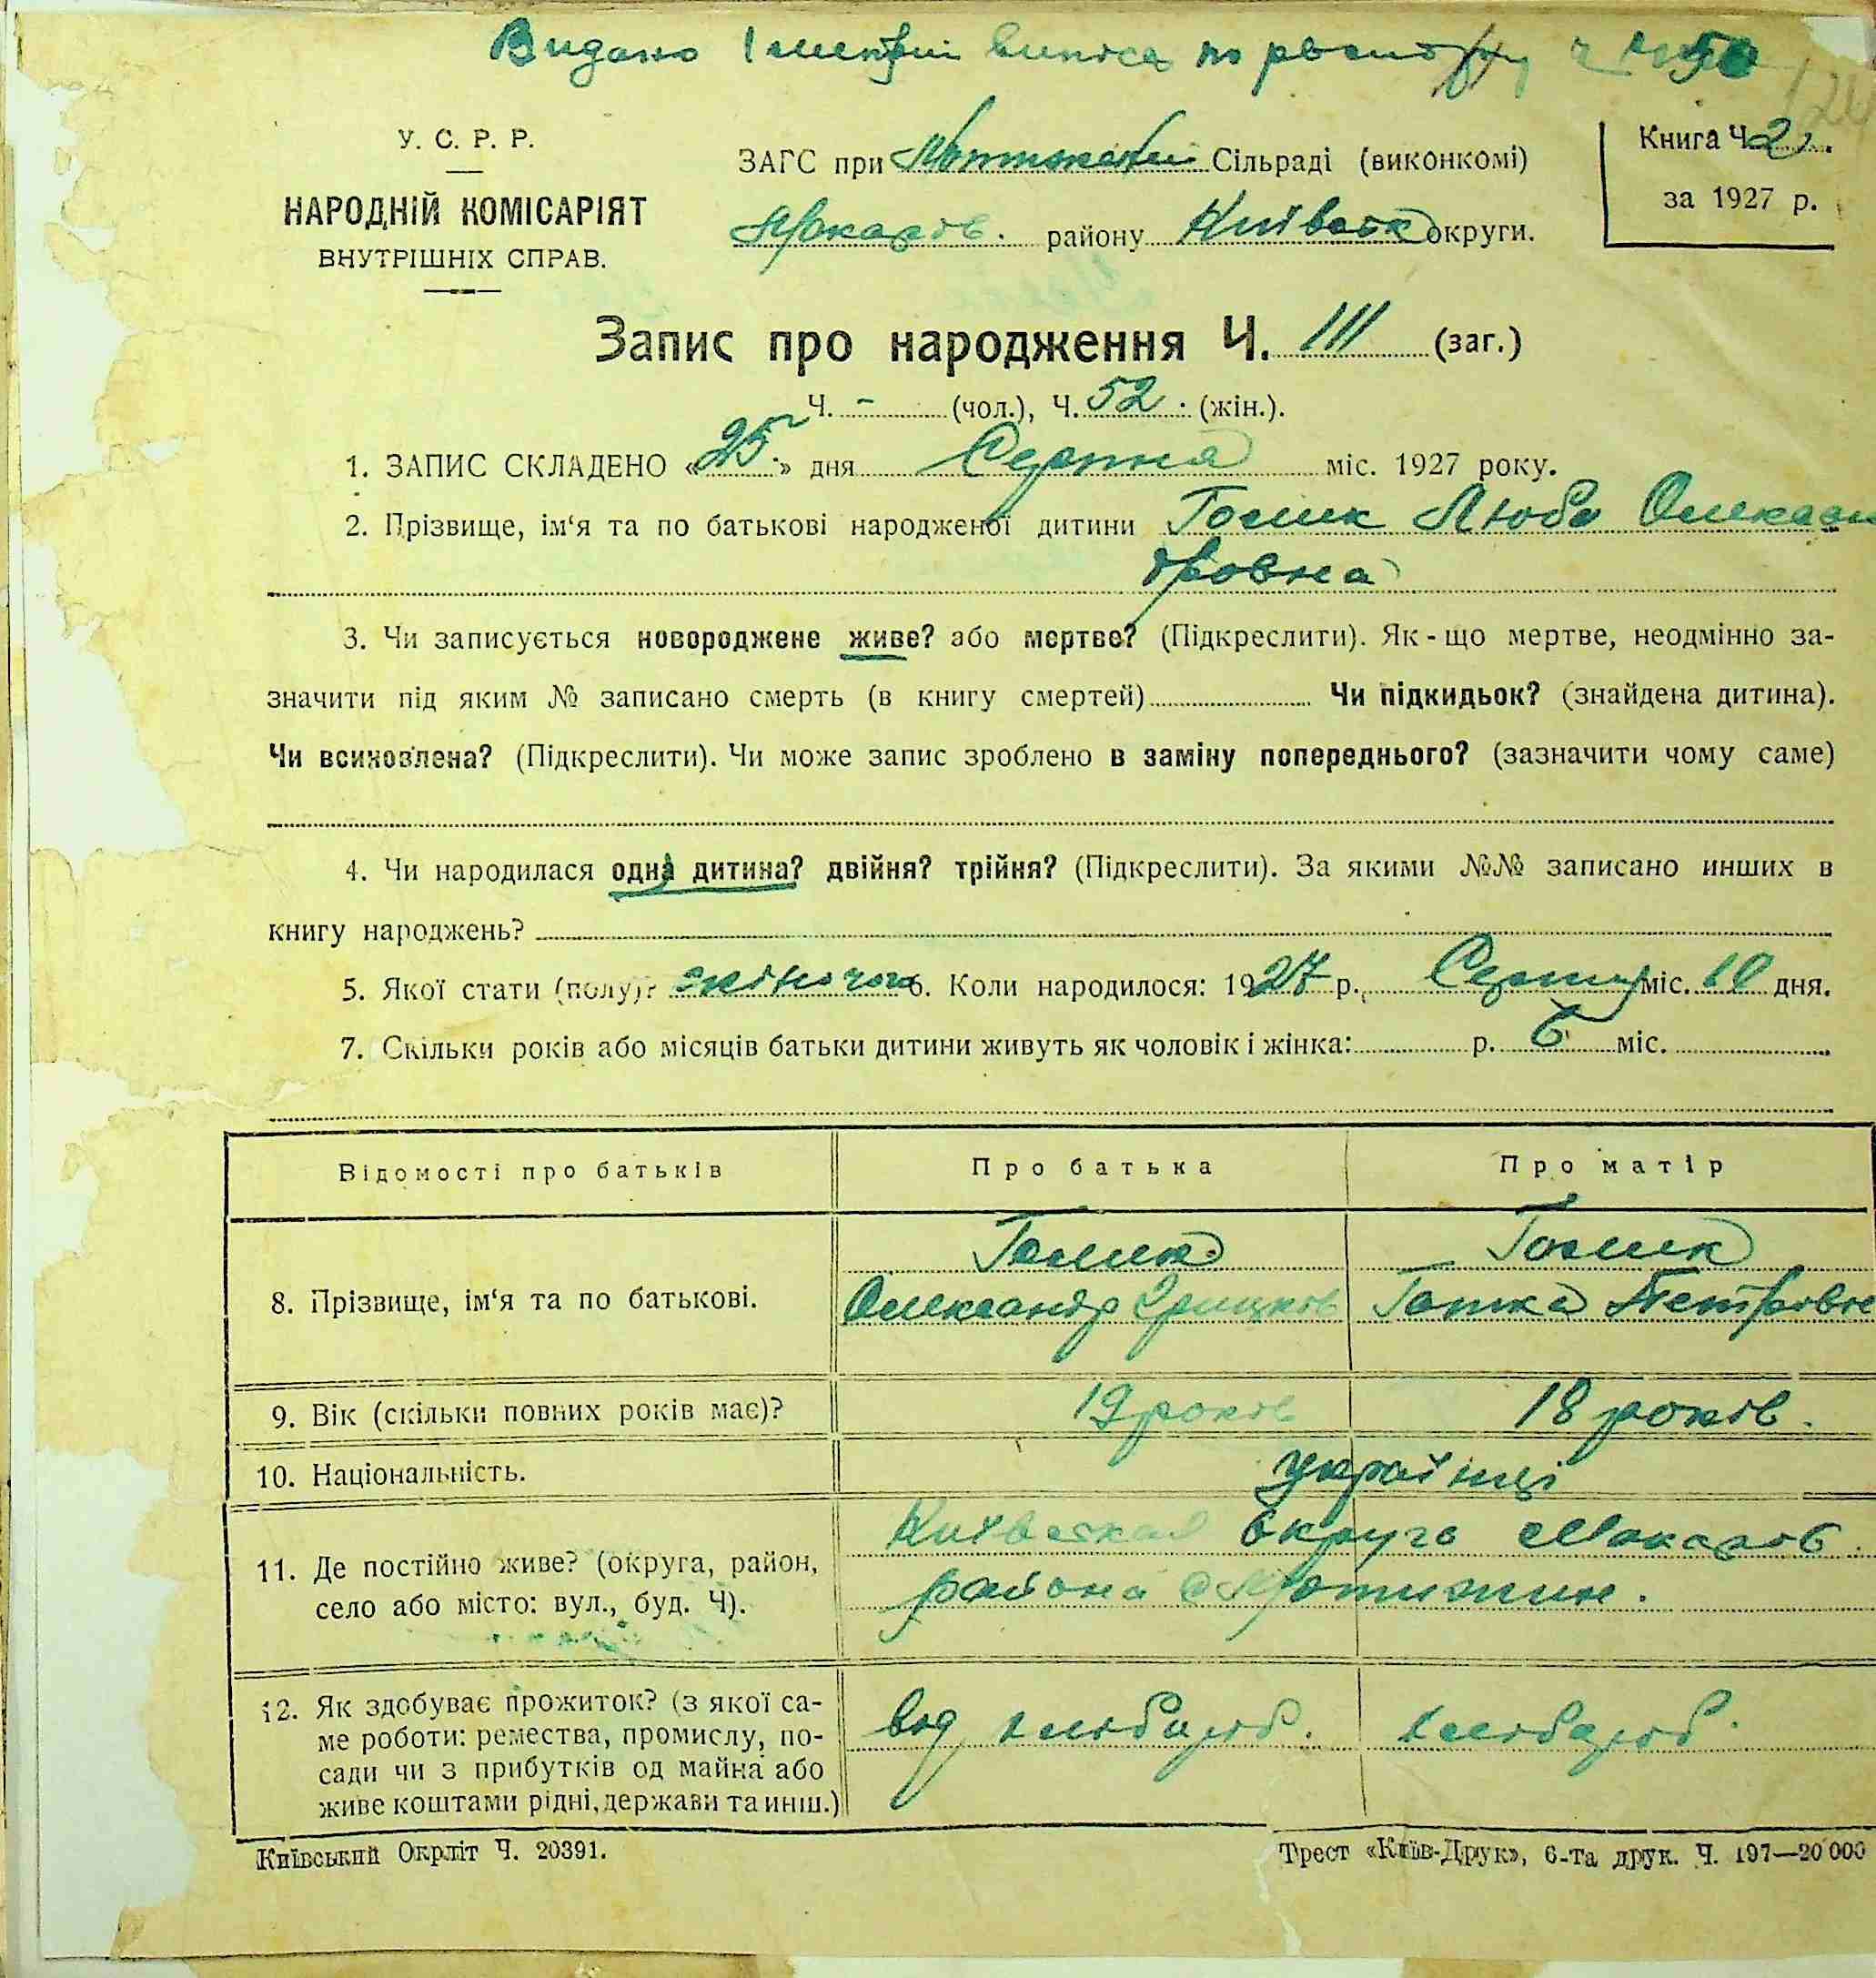 Видано
У. С. Р. Р.
НАРОДНІЙ КОМІСАРІЯТ
ВНУТРІШНІХ СПРАВ.
ЗАГС при Мотижській Сільраді (виконкомі)
Макарів. району Київськ округи.
Книга Ч. 2
за 1927 р.
Запис про народження Ч. 111 (заг.)
Ч. - (чол.), Ч. 52. (жін.).
1. ЗАПИС СКЛАДЕНО «25» дня Серпня міс. 1927 року.
2. Прізвище, ім‘я та по батькові народженої дитини Голик Люба Олексан
дровна
3. Чи записується новороджене живе? або мертве? (Підкреслити). Як-що мертве, неодмінно за-
значити під яким № записано смерть (в книгу смертей) Чи підкидьок? (знайдена дитина).
Чи всиновлена? (Підкреслити). Чи може запис зроблено в заміну попереднього? (зазначити чому саме)
4. Чи народилася одна дитина? двійня? трійня? (Підкреслити). За якими №№ записано инших в
книгу народжень?
5. Якої стати (полу)? жіночого 6. Коли народилося: 1927 р., Серпня міс. 10 дня.
7. Скільки років або місяців батьки дитини живуть як чоловік і жінка: р. 6 міс.
Відомості про батьків Про батька Про матір
8. Прізвище, ім‘я та по батькові. Голик Голик
Олександр Грицков Гапка Петровне
9. Вік (скільки повних років має)? 19 років 18 років.
10. Національність. українці
11. Де постійно живе? (округа, район,
село або місто: вул., буд. Ч).
Київская округа Макаров.
района с Мотижин.
12. Як здобуває прожиток? (з якої са-
ме роботи: ремества, промислу, по-
сади чи з прибутків од майна або
живе коштами рідні, держави та инш.)
від хлібороб. хлібороб.
Київський Окрліт Ч. 20391.
Трест «Київ-Друк», 6-та друк. Ч. 197—20 000